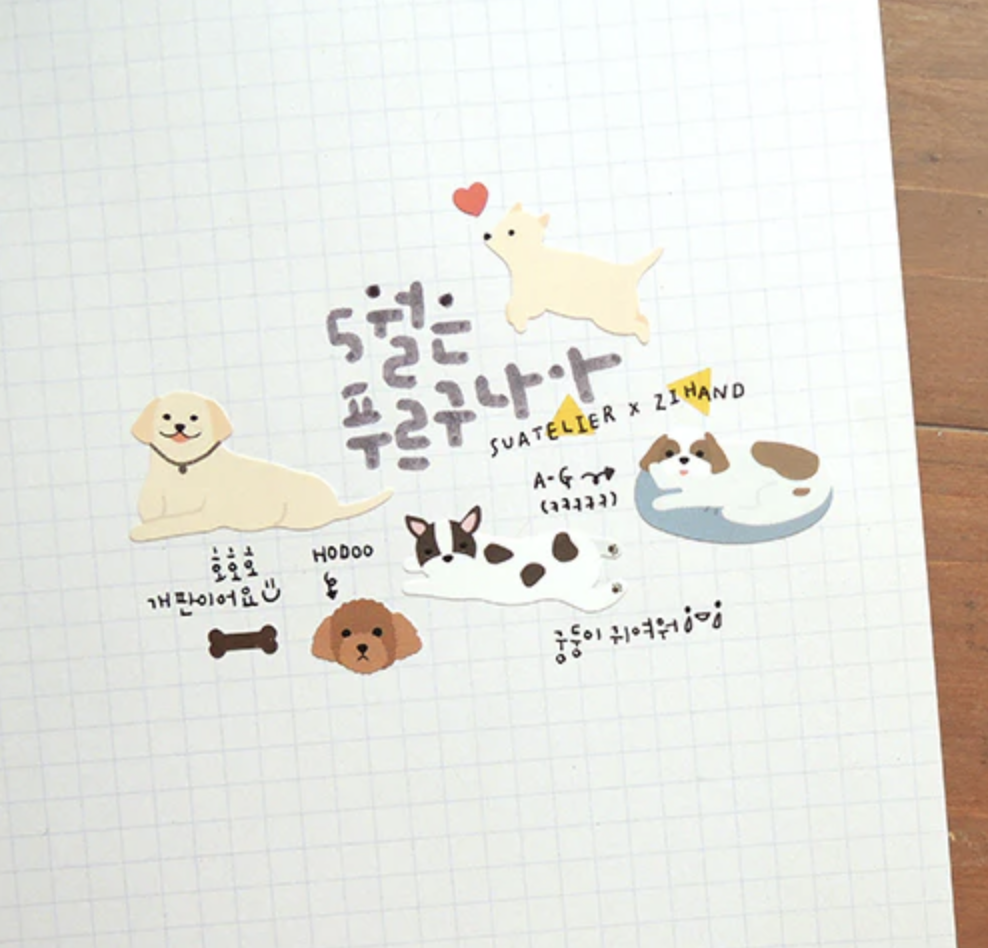 5월은
푸르구나아
SUATELIER X ZIHAND
A-G
(ㅋㅋㅋㅋㅋ)
효효효
개판이어요
HODOO
궁둥이 귀여워